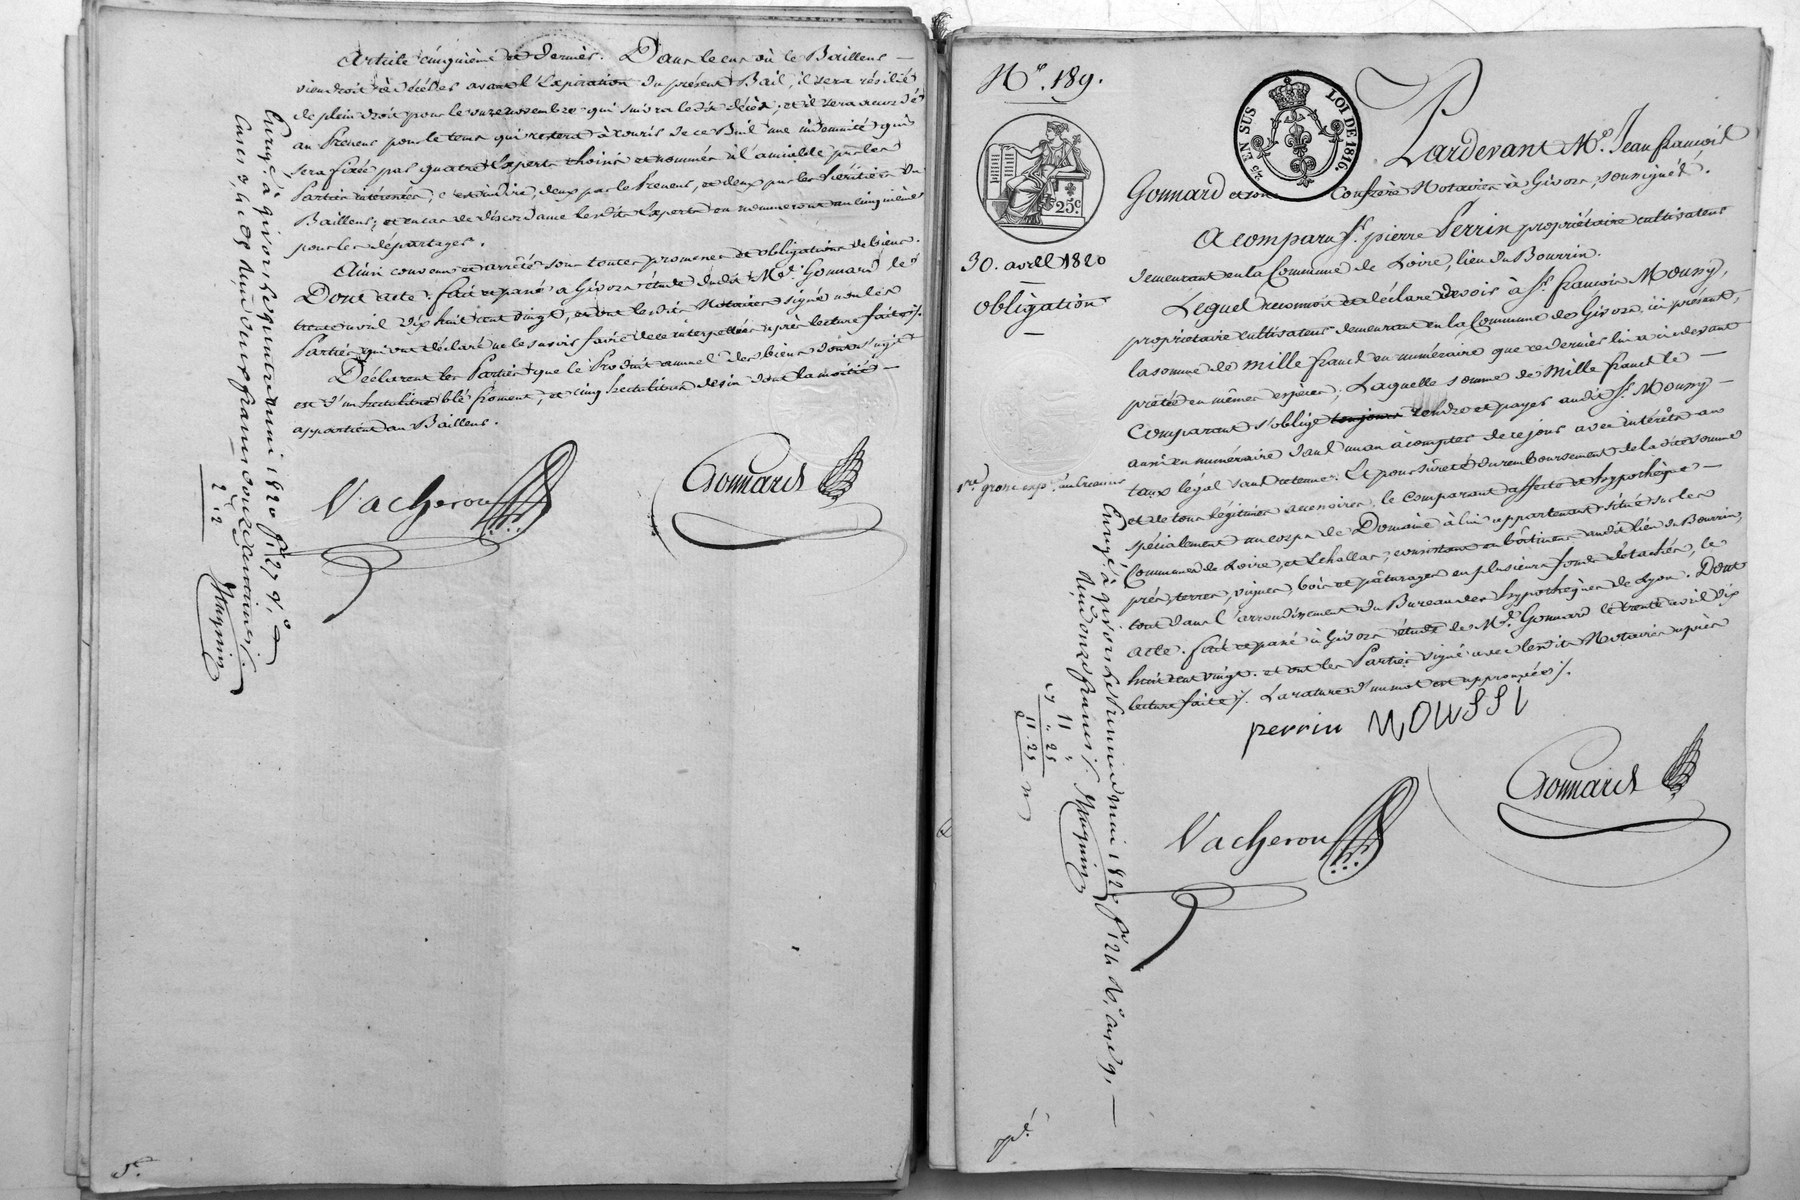 Article cinquième et dernier. Dans le cas où le Bailleur
viendroit à décéder avant l'Expiration du présent Bail, il sera résilié
de plein droit pour le onze novembre qui suivra ledit décès; et il sera accordé
au Preneur pour le tems qui restera à courir de ce Bail une indemnité qui
sera fixée par quatre Experts choisis et nommés à l'amiable par les
Parties intéressées, c'est à dire, deux par le Preneur, et deux par les héritiers du
Bailleur; et en cas de discordance lesdits Experts en nommeront un cinquième
pour les départager.
Ainsi convenu et arrêté sous toutes promesses et obligations de biens.
Dont acte. fait et passé à Givors étude dudit Me. Gonnard le
trente avril dix huit cent vingt, et ont lesdits Notaires signé non les
Parties qui ont déclaré ne le savoir faire de ce interpellées après lecture faite ./.
Déclarent les Parties que le Produit annuel des biens dont s'agit
est d'un hectolitre blé froment, et cinq hectolitres de vin dont la moitié
appartient au Bailleur.
Vacheron
Gonnard
Enregé. à givors le quatre mai 1820 fo. 127 Vo.
Cases 3, reçu deux francs
2
2
Magnin
5e.
No. 189.
25c.
EN SUS
LOI DE 1816.
30. avril 1820
obligation
1re grosse exp. au Créancier
Pardevant Me. Jean françois
Gonnard et son Confrère Notaires à Givors, soussignés.
A comparu Sr. pierre Perrin propriétaire cultivateur
demeurant en la Commune de Loire, lieu du Bourrin.
Lequel reconnoit et déclare devoir à Sr. françois Moussy,
propriétaire cultivateur demeurant en la Commune de Givors, ici présent,
la somme de mille francs en numéraire que ce dernier lui a ci devant
prêtée en mêmes espèces; Laquelle somme de mille francs le
Comparant s'oblige rendre et payer audit Sr. Moussy
aussi en numéraire dans un an à compter de ce jour avec intérêts au
taux légal sans retenue. Et pour sûreté du remboursement de ladite somme
et de tous légitimes accessoires, le Comparant affecte et hypothèque
spécialement un corps de Domaine à lui appartenant situé sur les
Communes de Loire, et Echallas, consistant en bâtimens audit lieu du Bourrin,
prés, terres, vignes, bois et pâturages en plusieurs fonds détachés, le
tout dans l'arrondissement du Bureau des hypothèques de Lyon. Dont
acte. fait et passé à Givors étude de Me. Gonnard le trente avril dix
huit cent vingt. et ont les Parties signé avec lesdits Notaires après
lecture faite ./. La rature d'un mot est approuvée ./.
perrin MOUSSI
Vacheron
Gonnard
Enregé. à givors le 1820 fo. 124 Vo.
reçu onze francs
Magnin
11
11. 25